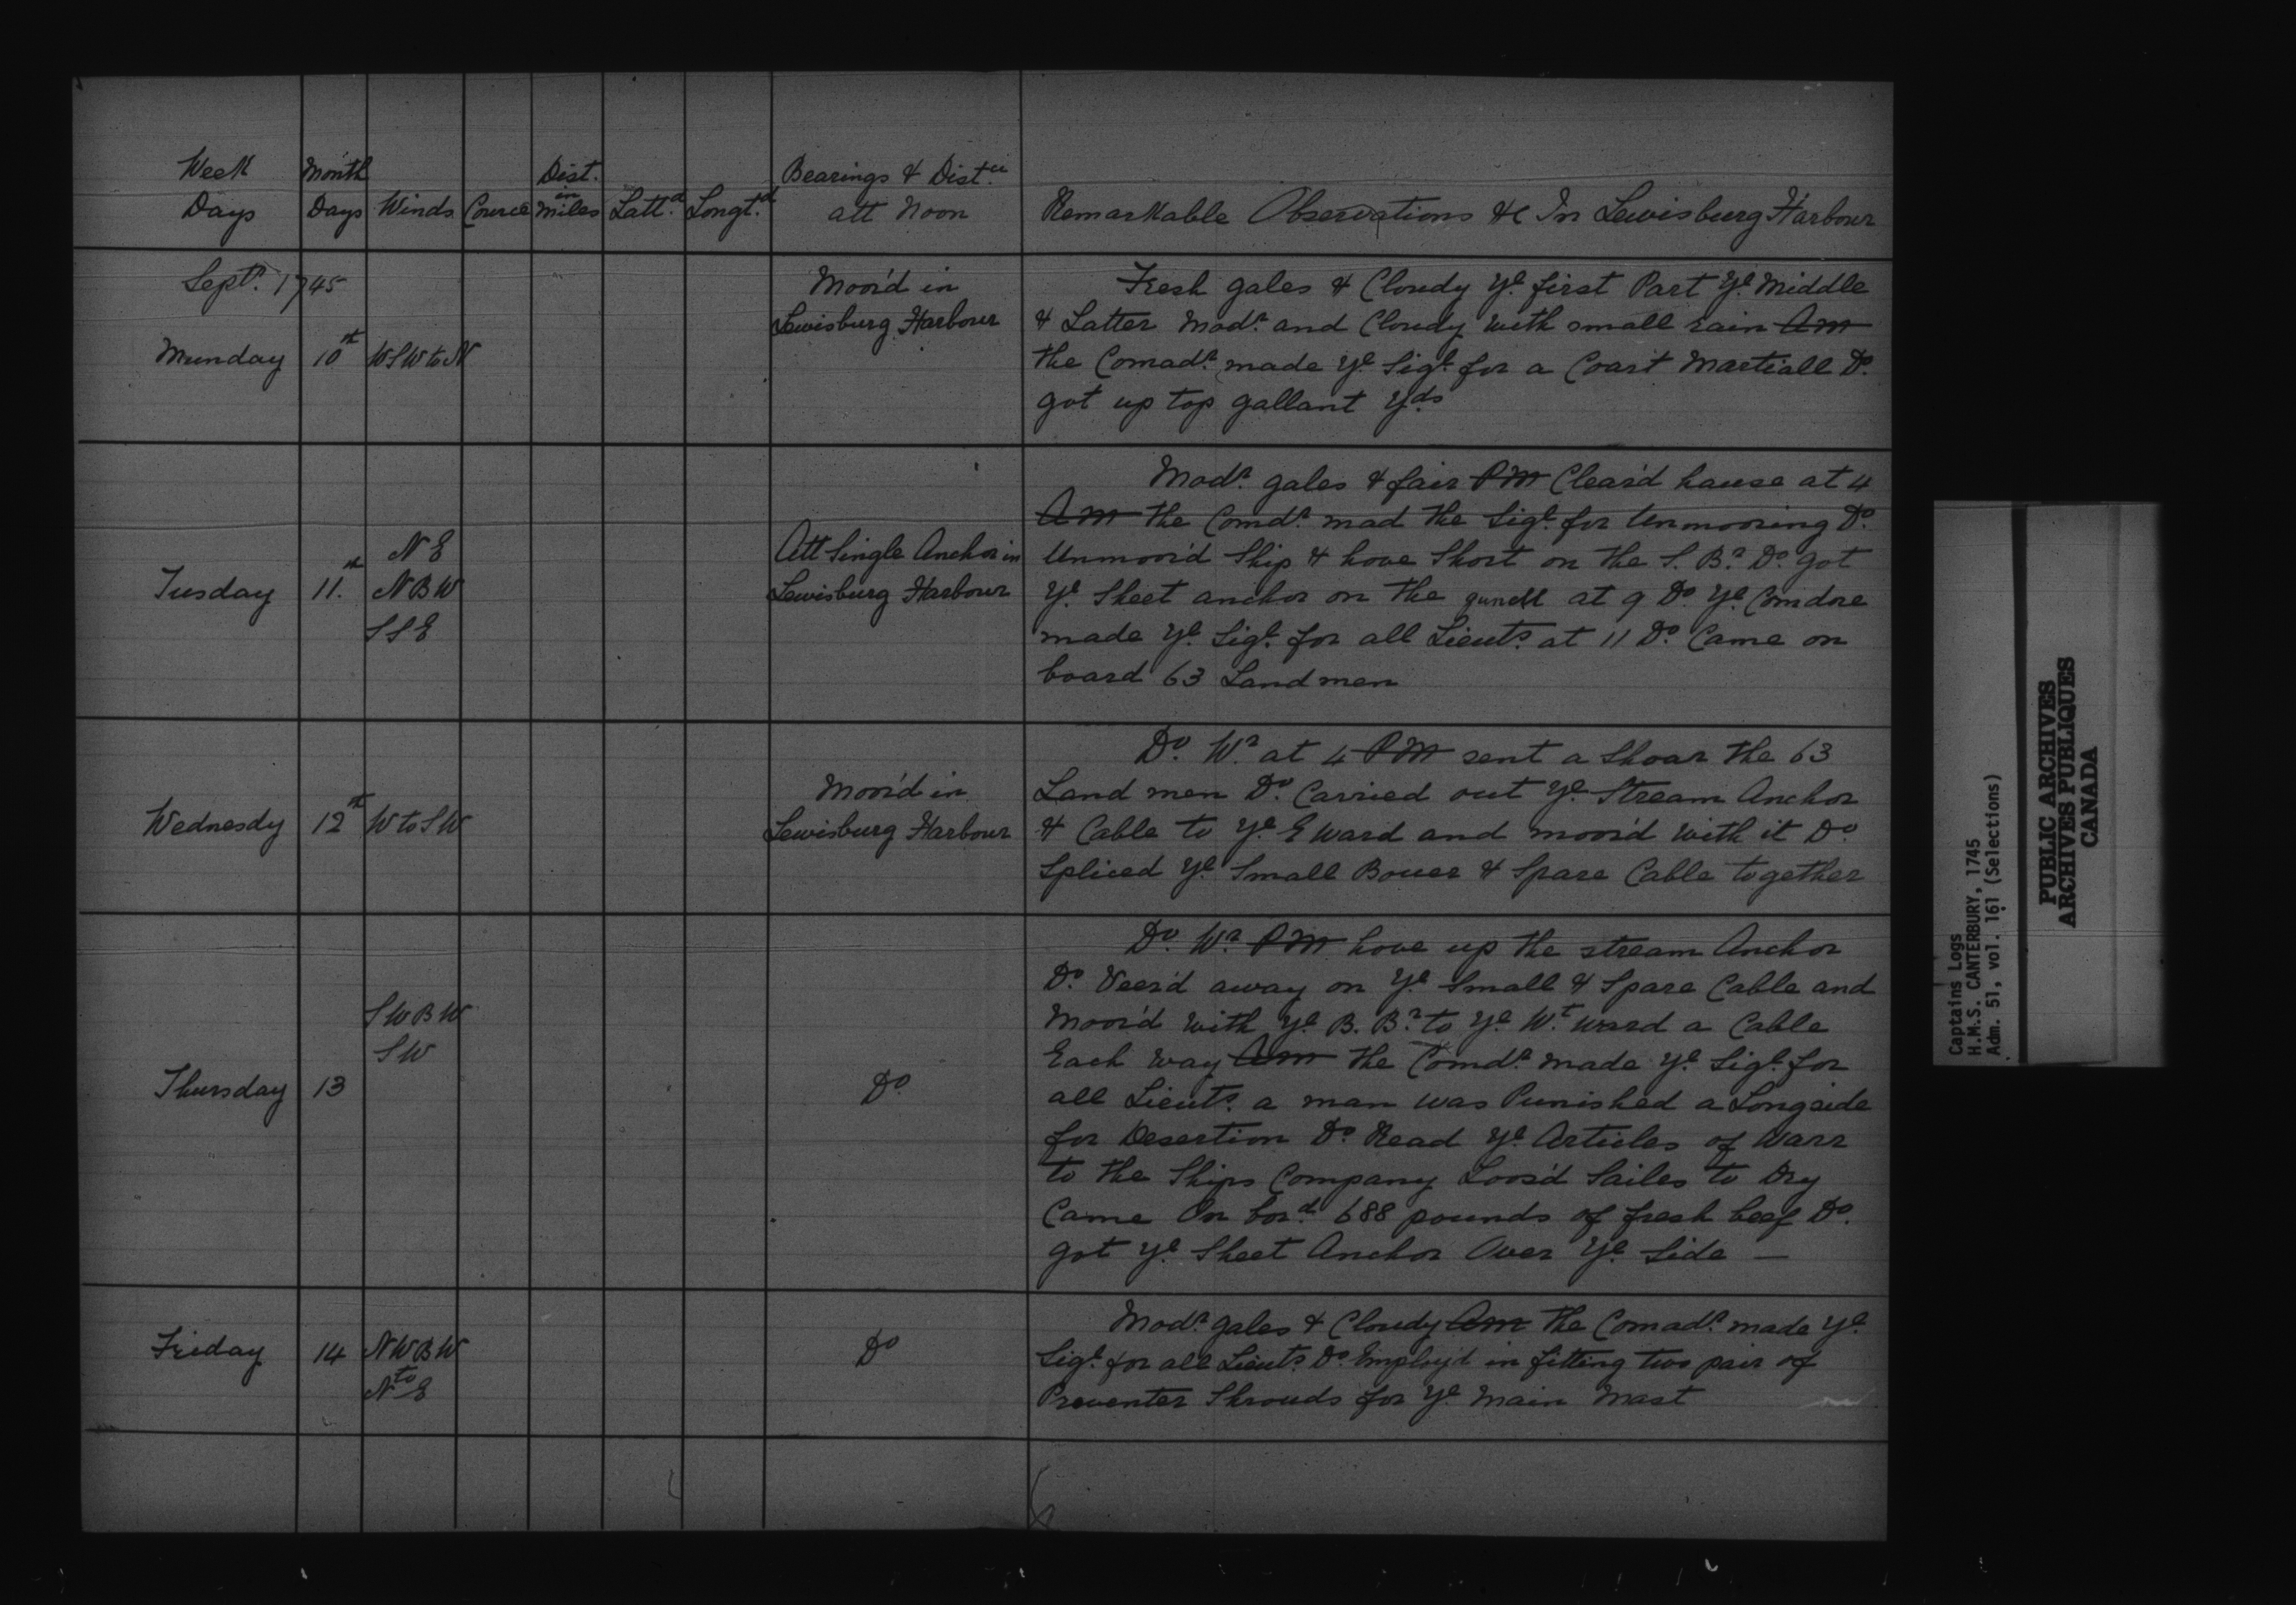 Week Month Dist. Bearings & Dist.ce
Days Days Winds Cource in miles Latt.d Longt.d att Noon Remarkable Observations &c In Lewisburg Harbour
Sept.r 1745
Moor'd in
Lewisburg Harbour
Munday 10th WSW to N
Fresh gales & Cloudy Ye first Part Ye Middle
& Latter Mod.r and Cloudy with small rain AM
the Comad.r made Ye Sigl. for a Coart Martiall Do.
got up top gallant Yds
Tusday 11.th NE
NBW
SSE
Att Single Anchor in
Lewisburg Harbour
Mod.r gales & fair PM Clear'd hause at 4
AM the Comd.r mad the Sigl. for Unmooring Do.
Unmoor'd Ship & hove Short on the S. B.r Do. got
Ye Sheet anchor on the gunell at 9 Do. Ye Comdore
made Ye Sigl. for all Lieut.s at 11 Do. Came on
board 63 Land men
Wednesdy 12th W to SW
Moor'd in
Lewisburg Harbour
Do. W.r at 4 PM sent a Shoar the 63
Land men Do. Carried out Ye Stream Anchor
& Cable to Ye E Ward and moor'd with it Do.
Spliced Ye Small Bouer & Spare Cable together
Thursday 13
SWBW
SW
Do.
Do. W.r PM hove up the stream Anchor
Do. Veer'd away on Ye Small & Spare Cable and
Moor'd with Ye B. B.r to Ye W.t ward a Cable
Each way AM the Comd.r made Ye Sigl. for
all Lieut.s a man was Punished a Longside
for Desertion Do. Read Ye Articles of Warr
to the Ships Company Loos'd Sailes to Dry
Came On bor.d 688 pounds of fresh beef Do.
got Ye Sheet Anchor Over Ye Side —
Friday 14 NWBW
to
NE
Do
Mod.r gales & Cloudy AM the Comad.r made Ye
Sigl. for all Lieut.s Do. Employ'd in fitting two pair of
Preventer Shrouds for Ye Main Mast
Captains Logs
H.M.S. CANTERBURY, 1745
Adm. 51, vol. 161 (Selections)
PUBLIC ARCHIVES
ARCHIVES PUBLIQUES
CANADA